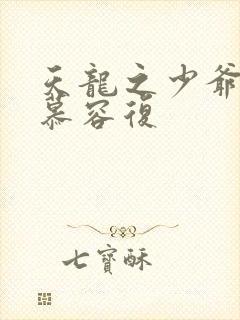 天龍之少爺
慕容復
七寶酥